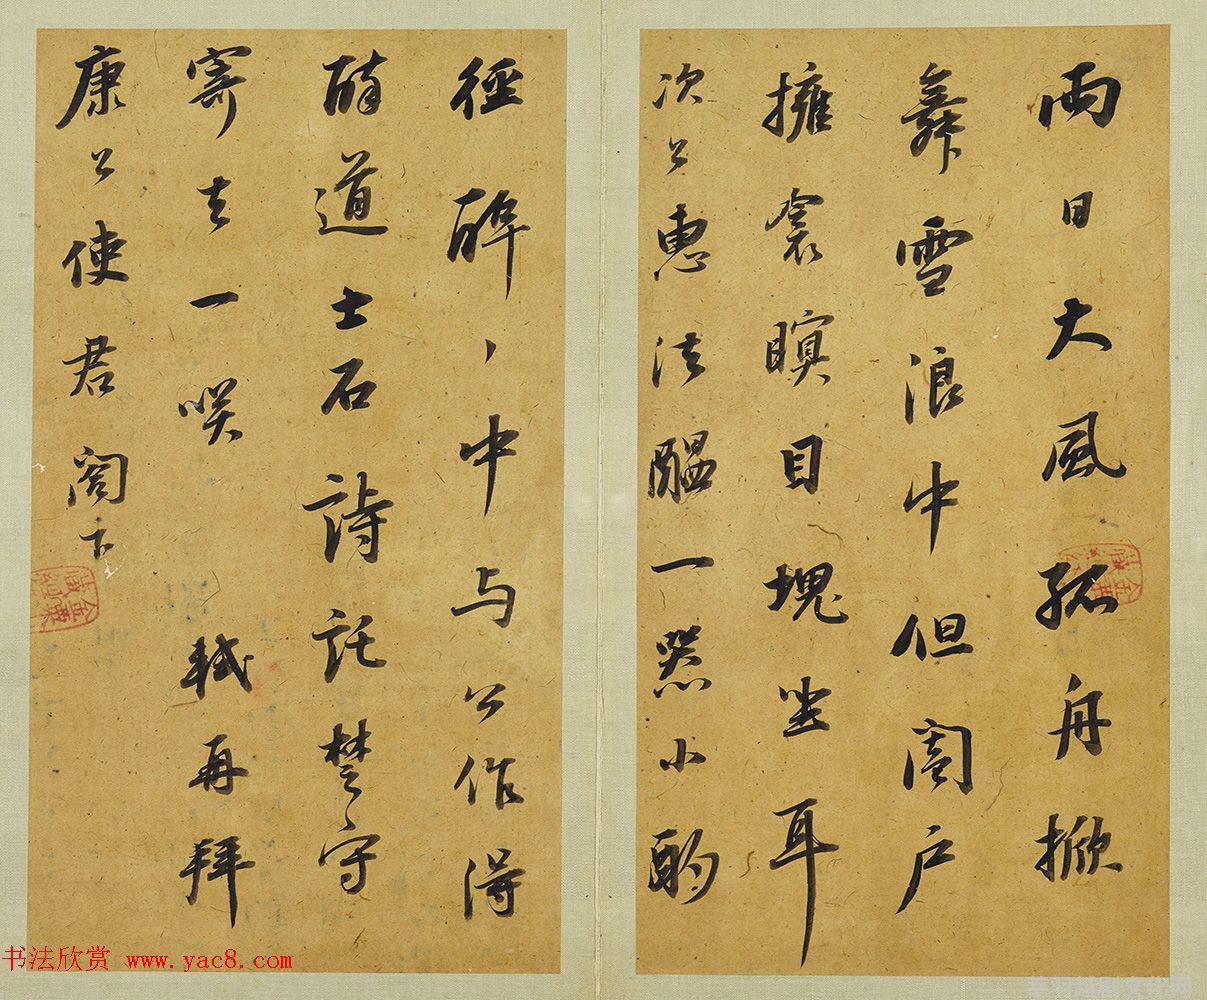 兩日大風孤舟掀
舞雪浪中但闔戶
擁衾瞑目塊坐耳
次公惠法醞一器小酌
徑醉醉中與公作得
醉道士石詩託楚守
寄去一笑 軾再拜
康公使君閤下
书法欣赏 www.yac8.com